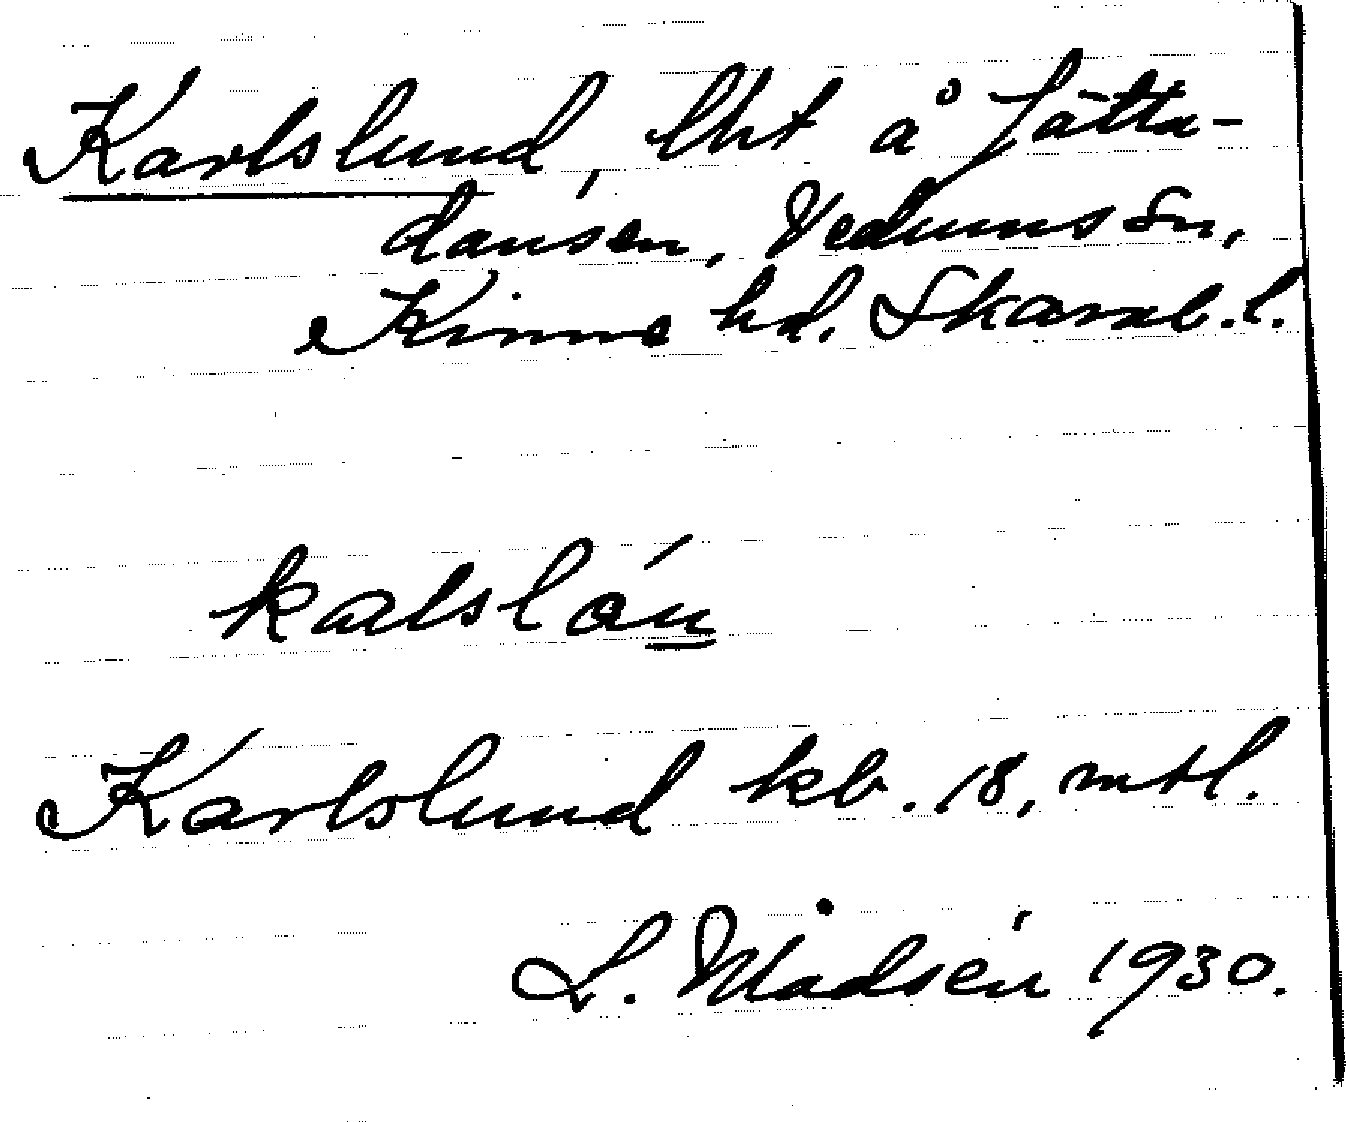 Karlslund, lht å Jätta-
dansen, Vedums sn,
Kinne hd. Skarab. l.
kalslón
Karlslund kb. 18, mtl.
L. Mådsén 1930.